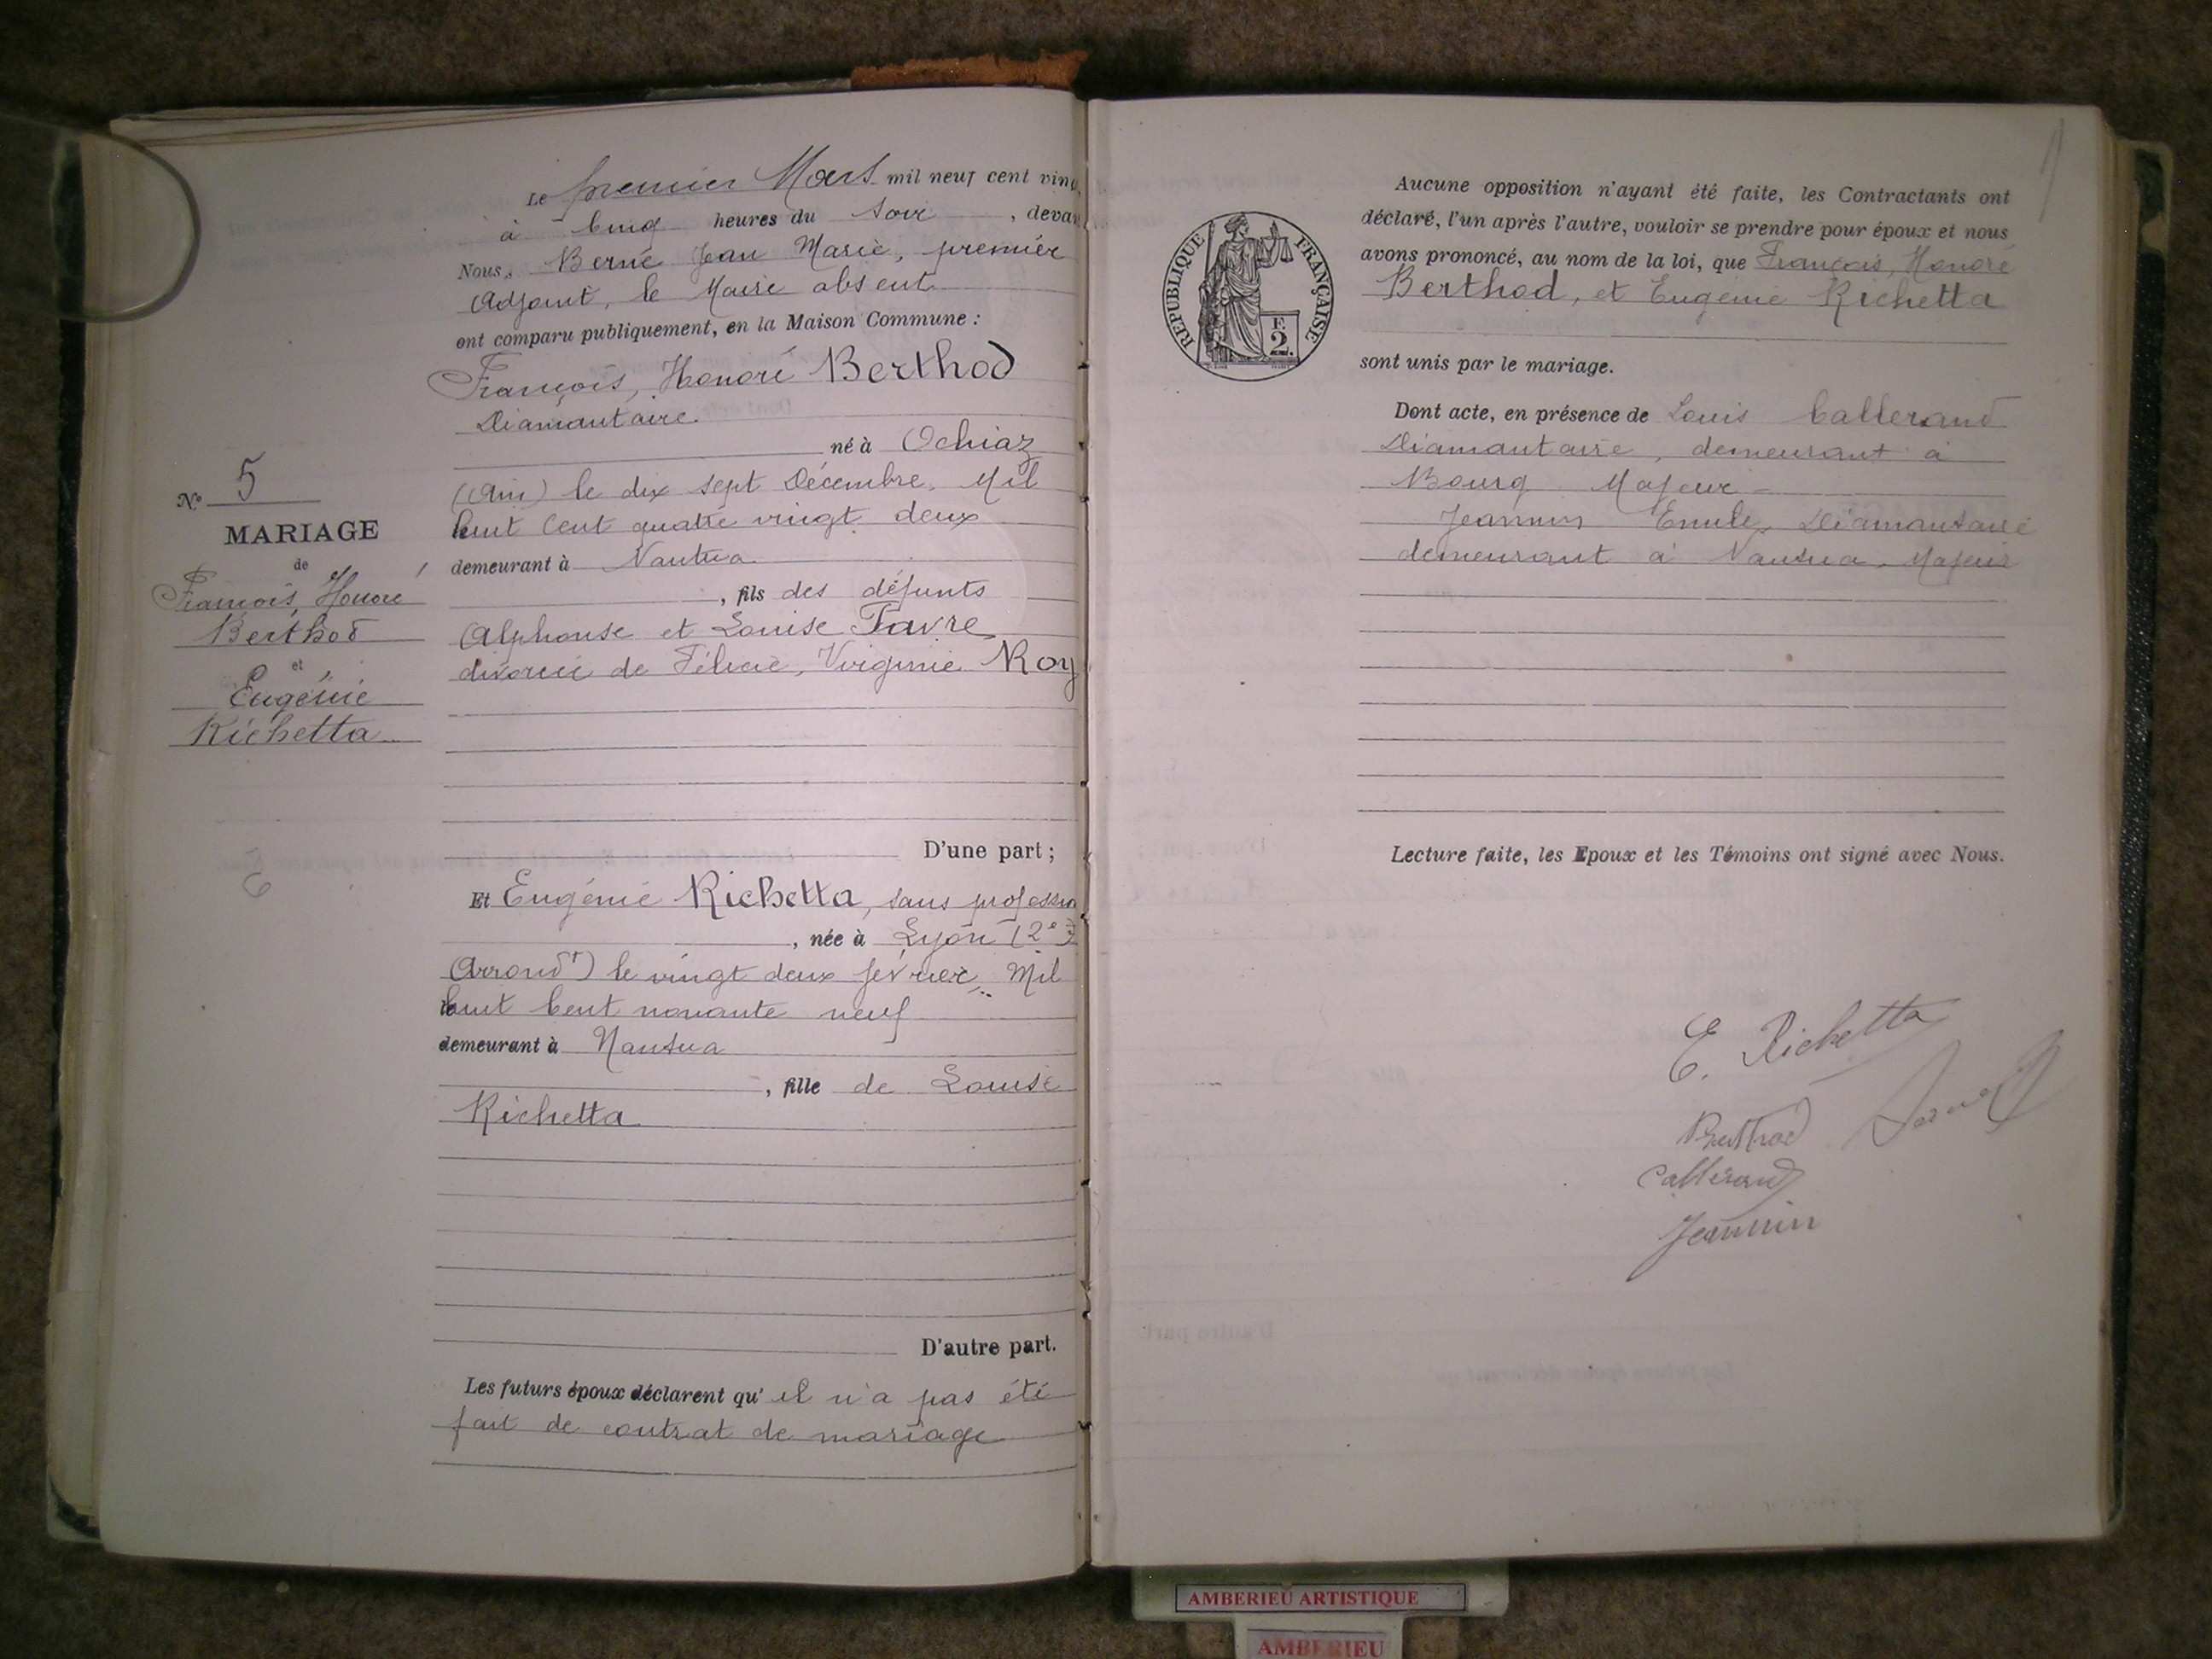 Le premier Mars mil neuf cent vin
à Cinq heures du Soir, deva
Nous, Berne Jean Marie, premier
Adjoint, le Maire absent
ont comparu publiquement, en la Maison Commune :
François, Honoré Berthod
Diamantaire
né à Ochiaz
(Ain) le dix sept Décembre, Mil
huit Cent quatre vingt deux
demeurant à Nantua
, fils des défunts
Alphonse et Louise Favre
divorcé de Félicie, Virginie Roy
D'une part ;
Et Eugénie Richetta, sans profession
, née à Lyon (2e
Arrondt) le vingt deux février, Mil
huit Cent nonante neuf
demeurant à Nantua
, fille de Louise
Richetta
D'autre part.
Les futurs époux déclarent qu'il n'a pas été
fait de contrat de mariage
N° 5
MARIAGE
de
François, Honoré
Berthod
et
Eugénie
Richetta
RÉPUBLIQUE FRANÇAISE
F.
2.
Aucune opposition n'ayant été faite, les Contractants ont
déclaré, l'un après l'autre, vouloir se prendre pour époux et nous
avons prononcé, au nom de la loi, que François, Honoré
Berthod, et Eugénie Richetta
sont unis par le mariage.
Dont acte, en présence de Louis Calleraud
Diamantaire, demeurant à
Bourg Majeur
Jeannin Emile, Diamantaire
demeurant à Nantua, Majeur
Lecture faite, les Epoux et les Témoins ont signé avec Nous.
E. Richetta
Berthod
Calleraud
Jeannin
AMBERIEU ARTISTIQUE
AMBERIEU